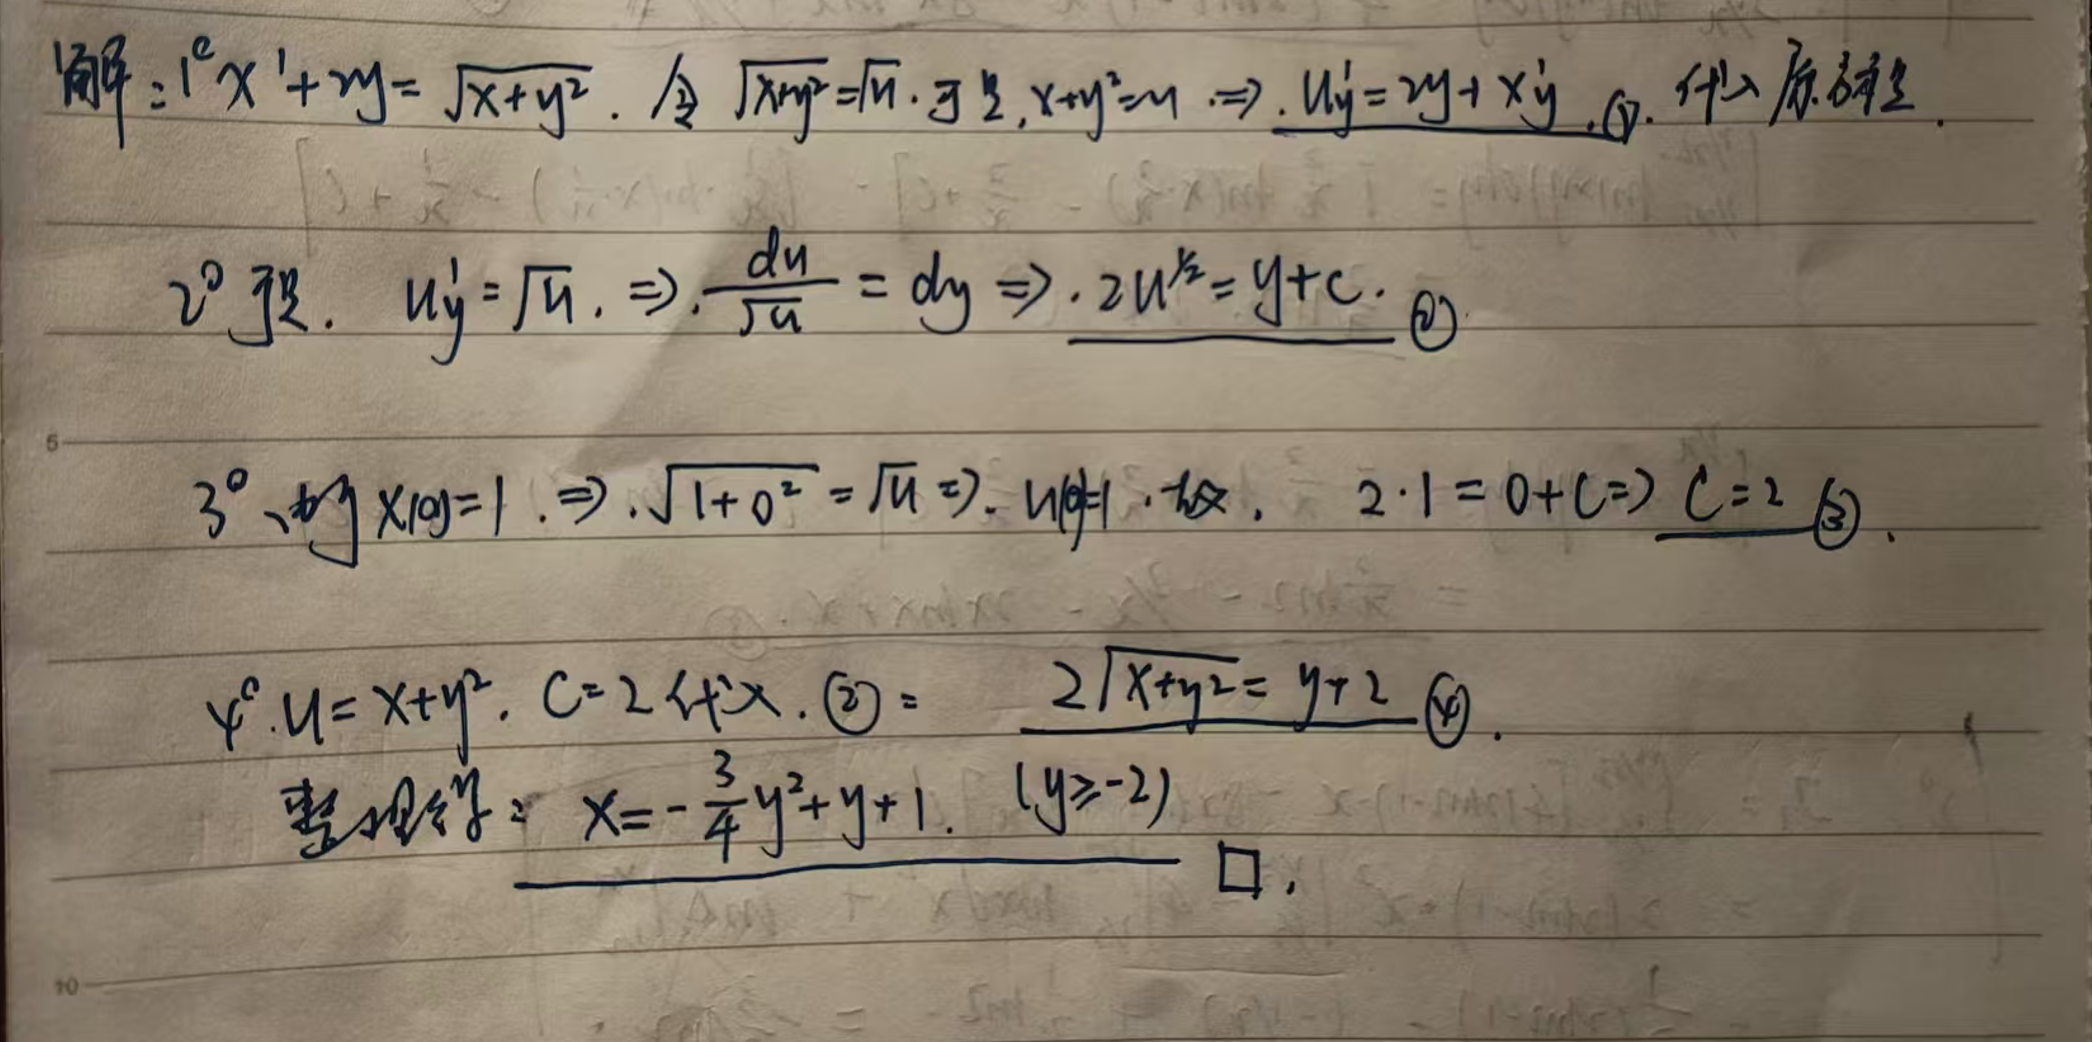 解：1° x'+2y=√(x+y²). 令 √(x+y²)=√u. 于是, x+y²=u ⇒. u'y=2y+x'y. ①. 代入原方程.
2° 于是. u'y=√u. ⇒. du/√u = dy ⇒. 2u^½=y+c. ②
5
3°、由 x(0)=1. ⇒. √(1+0²)=√u ⇒. u(0)=1. 故. 2·1=0+C ⇒ C=2 ③.
4°. u=x+y². C=2 代入. ②: 2√(x+y²)=y+2 ④.
整理得: x=-3/4y²+y+1. (y≥-2)
□.
10